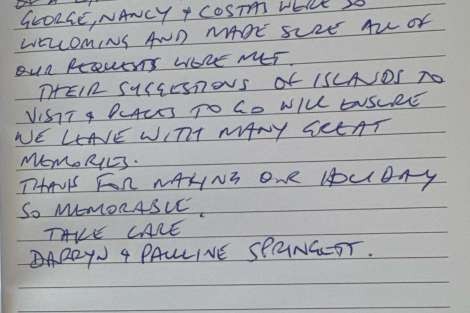 GEORGE, NANCY & COSTAS WERE SO
WELCOMING AND MADE SURE ALL OF
OUR REQUESTS WERE MET.
THEIR SUGGESTIONS OF ISLANDS TO
VISIT & PLACES TO GO WILL ENSURE
WE LEAVE WITH MANY GREAT
MEMORIES.
THANKS FOR MAKING OUR HOLIDAY
SO MEMORABLE.
TAKE CARE
DARRYN & PAULINE SPRINGETT.